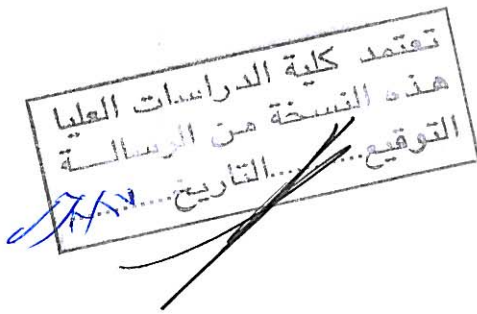 تعتمد كلية الدراسات العليا
هذه النسخة من الرسالــة
التوقيع............التاريخ............